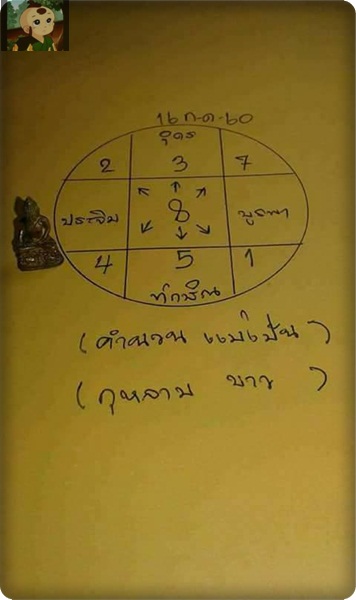 16 ก.ค.60
อุดร
2 3 7
ประจิม 8 บูรพา
4 5 1
ทักษิณ
(คำนวน แม่นปืน)
(กุหลาบ ขาว)